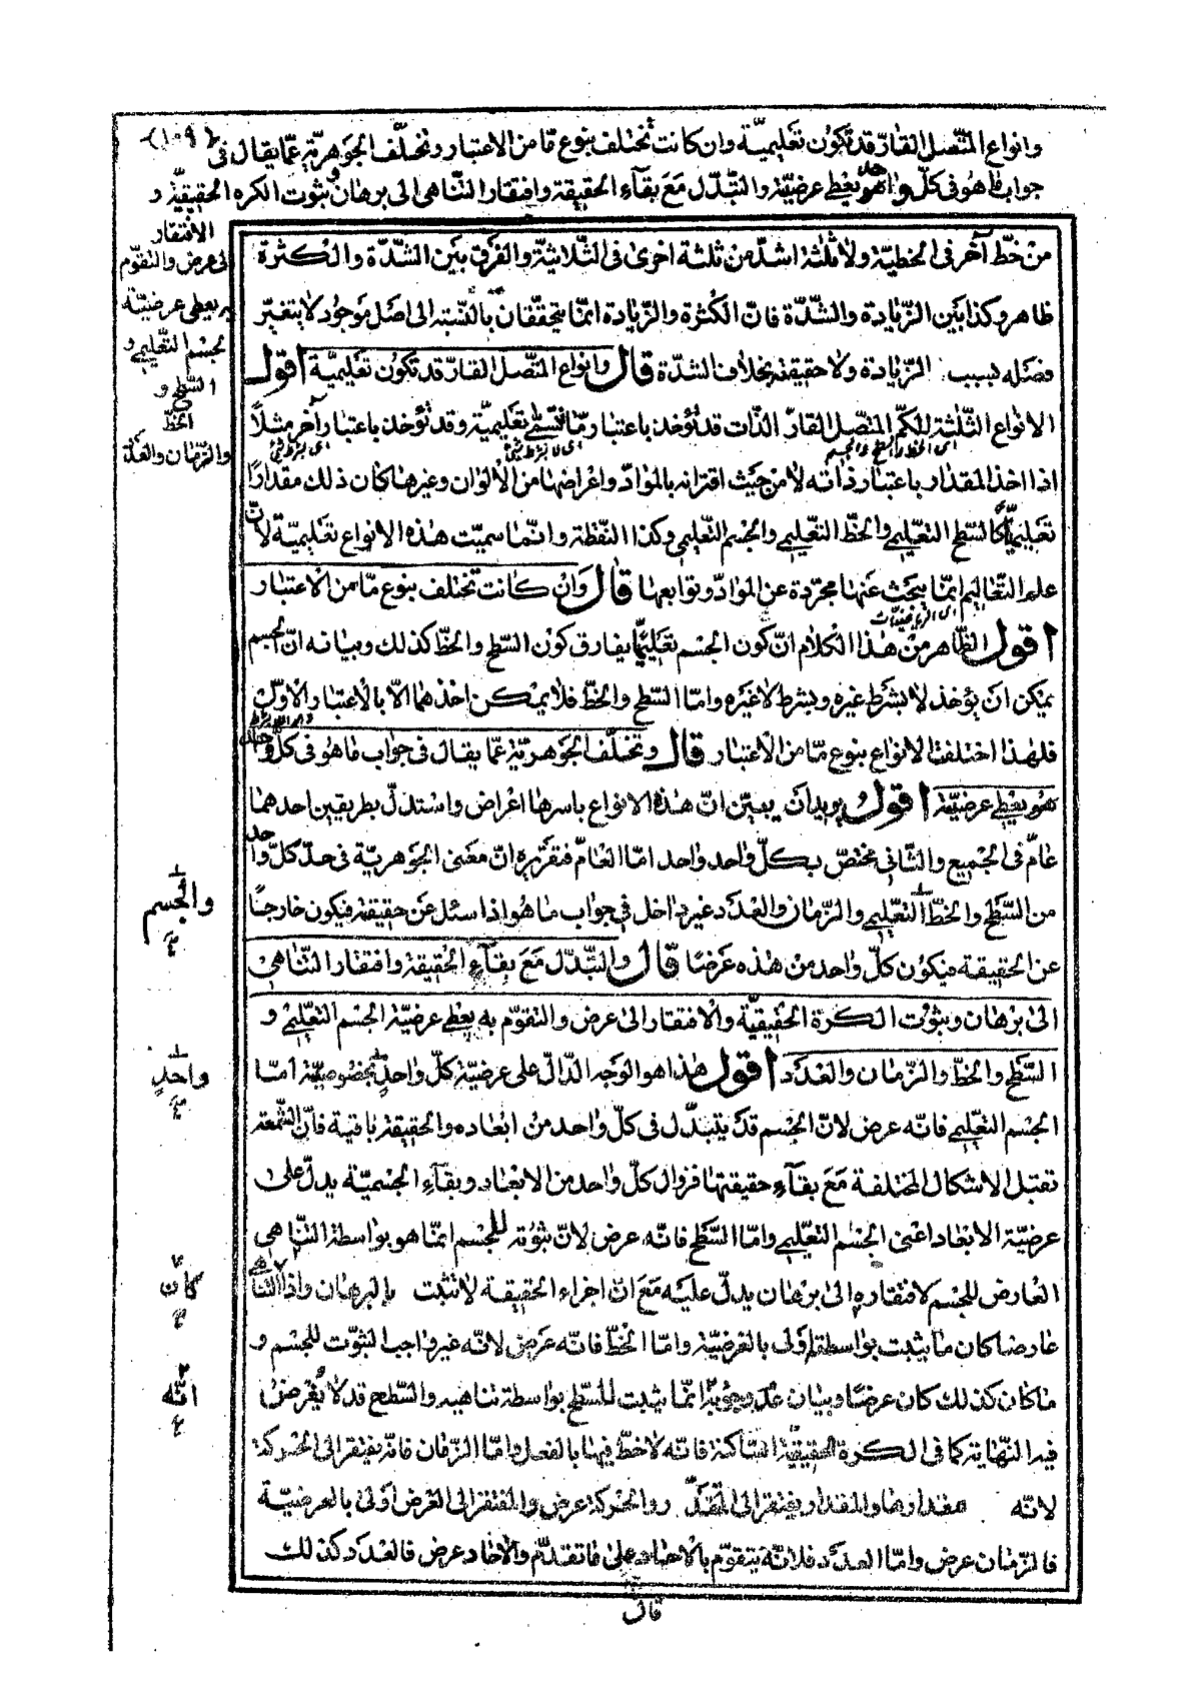 (١٠٩)
وانواع المتّصل القارّ قد تكون تعليميّة وان كانت تختلف بنوع مّا من الاعتبار وتخلّف الجوهريّة عمّا يقال فى
جواب ما هو فى كلّ واحد يعطى عرضيّته والتبدّل مع بقاء الحقيقة وافتقار التناهى الى برهان وثبوت الكره الحقيقيّة و
الافتقار
الى عرض والتقوّم
به يعطى عرضيّة
الجسم التعليمى و
السّطح و
الخطّ
والزّمان والعدد
من خطّ آخر فى الخطيّة ولا ثلثة اشدّ من ثلثة اخرى فى الثّلاثيّة والفرق بين الشّدّة والكثرة
ظاهر وكذا بين الزّيادة والشّدّة فانّ الكثرة والزّيادة انّما يتحقّقان بالنّسبة الى اصل موجود لا يتغيّر
فضله بسبب الزّيادة ولا حقيقته بخلاف الشدّة قال وانواع المتّصل القارّ قد تكون تعليميّة اقول
الانواع الثّلثة للكمّ المتّصل القارّ الذّات قد تؤخذ باعتبار مّا فتسمّى تعليميّة وقد تؤخذ باعتبار آخر مثلاً
اى الخط والسطح والجسم
اى لا بشرط شئ
اى بشرط شئ
اذا اخذ المقدار باعتبار ذاته لا من حيث اقترانه بالموادّ واعراضها من الالوان وغيرها كان ذلك مقدارًا
تعليميًّا كالسّطح التعليمى والخطّ التعليمى والجسم التّعليمى وكذا النّقطة وانّما سميّت هذه الانواع تعليميّة لانّ
علم التّعاليم انّما يبحث عنها مجرّدة عن الموادّ وتوابعها قال وان كانت تختلف بنوع مّا من الاعتبار
اى الرياضيات
اقول الظّاهر من هذا الكلام انّ كون الجسم تعليميًّا يفارق كون السّطح والخطّ كذلك وبيانه انّ الجسم
يمكن ان يؤخذ لا بشرط غيره وبشرط لا غيره وامّا السّطح والخطّ فلا يمكن اخذهما الّا بالاعتبار الاوّل
فلهذا اختلفت الانواع بنوع مّا من الاعتبار قال وتخلّف الجوهريّة عمّا يقال فى جواب ما هو فى كلّ واحد
هو يعطى عرضيّته اقول يريد ان يبيّن انّ هذه الانواع باسرها اعراض واستدلّ بطريقين احدهما
عامّ فى الجميع والثّانى مختصّ بكلّ واحد واحد امّا العامّ فتقريره انّ معنى الجوهريّة فى حدّ كلّ واحد
من السّطح والخطّ التعليمى والزّمان والعدد غير داخل فى جواب ما هو اذا سئل عن حقيقته فيكون خارجًا
والجسم
عن الحقيقة فيكون كلّ واحد من هذه عرضًا قال والتبدّل مع بقاء الحقيقة وافتقار التناهى
الى برهان وبثبوت الكرة الحقيقيّة والافتقار الى عرض والتقوّم به يعطى عرضيّة الجسم التعليمى و
السّطح والخطّ والزّمان والعدد اقول هذا هو الوجه الدّالّ على عرضيّة كلّ واحد بخصوصيّته امّا
واحدٍ
الجسم التعليمى فانّه عرض لانّ الجسم قد يتبدّل فى كلّ واحد من ابعاده والحقيقة باقية فانّ الشّمعة
تقبل الاشكال المختلفة مع بقاء حقيقتها فزوال كلّ واحد من الابعاد وبقاء الجسميّة يدلّ على
عرضيّة الابعاد اعنى الجسم التعليمى وامّا السّطح فانّه عرض لانّ ثبوته للجسم انّما هو بواسطة التناهى
العارض للجسم لافتقاره الى برهان يدلّ عليه مع انّ اجزاء الحقيقة لا تثبت بالبرهان واذا التناهى
كان
عارضا كان ما يثبت بواسطته اولى بالعرضيّة وامّا الخطّ فانّه عرض لانّه غير واجب الثبوت للجسم و
ما كان كذلك كان عرضًا وبيان عدم وجوبه انّما يثبت للسّطح بواسطة تناهيه والسّطح قد لا يعرض
انّه
فيه النّهاية كما فى الكرة الحقيقيّة الساكنة فانّه لا خطّ فيها بالفعل وامّا الزّمان فانّه يفتقر الى الحركة
لانّه مقدارها والمقدار يفتقر الى المتقدّر والحركة عرض والمفتقر الى العرض اولى بالعرضيّة
فالزّمان عرض وامّا العدد فلانّه يتقوّم بالاحاد على ما تقدّم والاحاد عرض فالعدد كذلك
قال